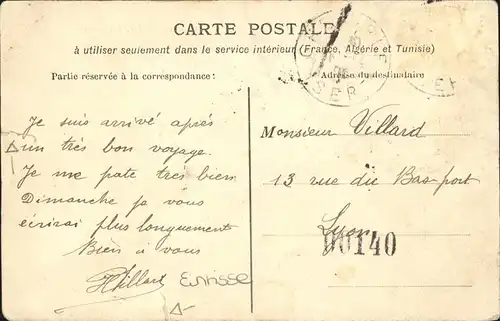 CARTE POSTALE
à utiliser seulement dans le service intérieur (France, Algérie et Tunisie)
Partie réservée à la correspondance :
Adresse du destinataire
Je suis arrivé après
un très bon voyage.
Je me pate très bien
Dimanche ja vous
écrirai plus longuement
Bien à vous
Villard
Monsieur Villard
13 rue du Bas port
Lyon
00140